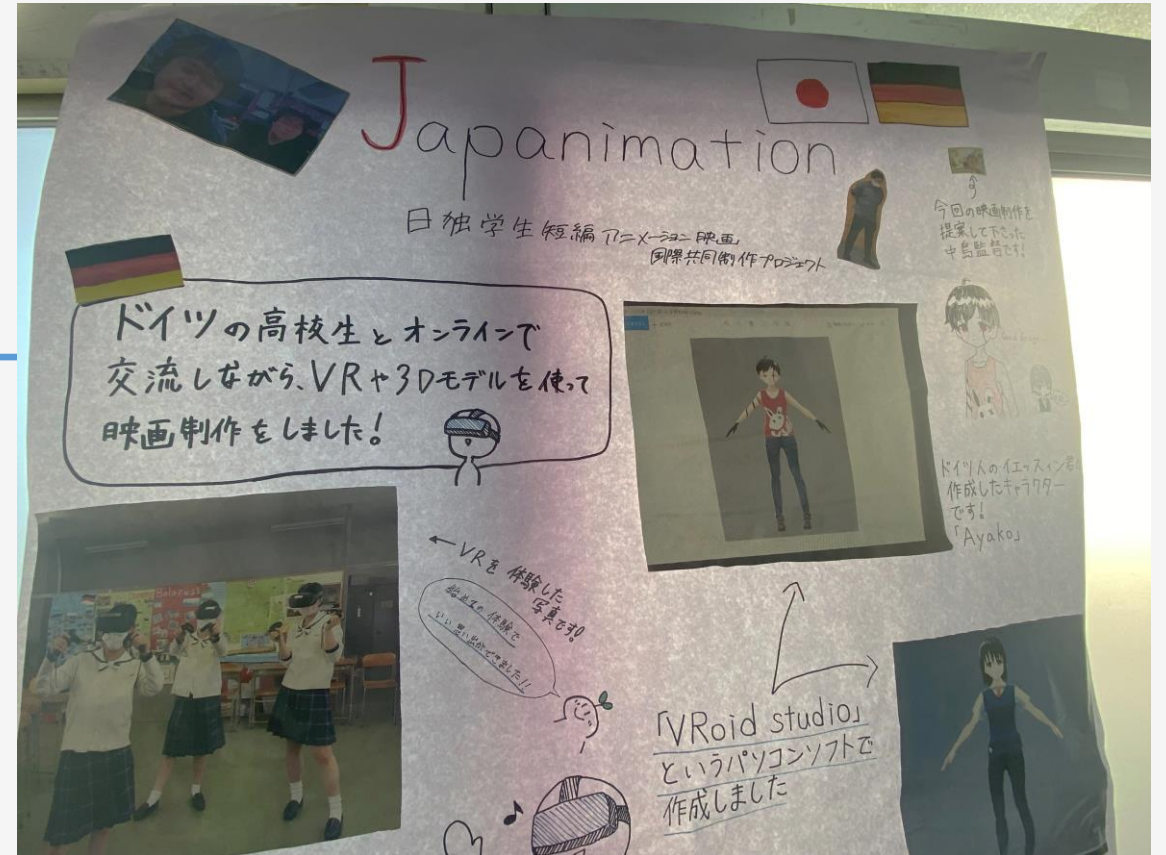 Japanimation
日独学生短編アニメーション映画
国際共同制作プロジェクト
今回の映画制作を
提案して下さった
中島監督です!
ドイツの高校生とオンラインで
交流しながら、VRや3Dモデルを使って
映画制作をしました!
ドイツ人のイエッスィン君
作成したキャラクター
です!
「Ayako」
←VRを体験した
写真です!
始めての体験で
いい思い出ができました!!
「VRoid studio」
というパソコンソフトで
作成しました